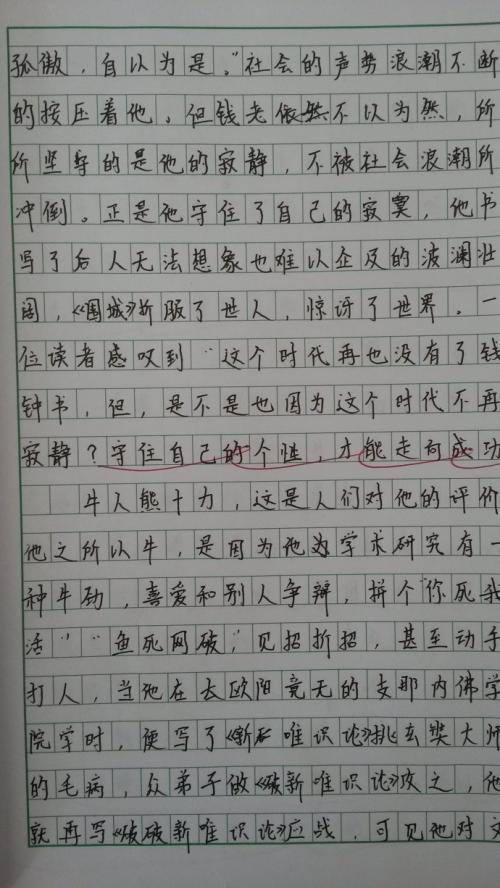 孤傲，自以为是。"社会的声势浪潮不断
的按压着他，但钱老依然不以为然，所
所坚守的是他的寂静，不被社会浪潮所
冲倒。正是他守住了自己的寂寞，他书
写了后人无法想象也难以企及的波澜壮
阔，《围城》折服了世人，惊讶了世界。一
位读者感叹到"这个时代再也没有了钱
钟书，但，是不是也因为这个时代不再
寂静？守住自己的个性，才能走向成功
牛人熊十力，这是人们对他的评价
他之所以牛，是因为他为学术研究有一
种牛劲，喜爱和别人争辩，拼个"你死我
活""鱼死网破"，见招折招，甚至动手
打人，当他在去欧阳竟无的支那内佛学
院学时，便写了《新唯识论》挑玄奘大师
的毛病，众弟子做《破新唯识论》攻之，他
就再写《破破新唯识论》应战，可见他对文